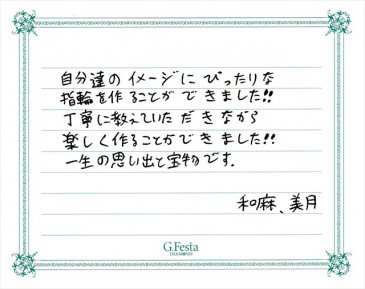 自分達のイメージにぴったりな
指輪を作ることができました!!
丁寧に教えていただきながら
楽しく作ることができました!!
一生の思い出と宝物です.
和麻、美月
G.Festa
DIAMOND